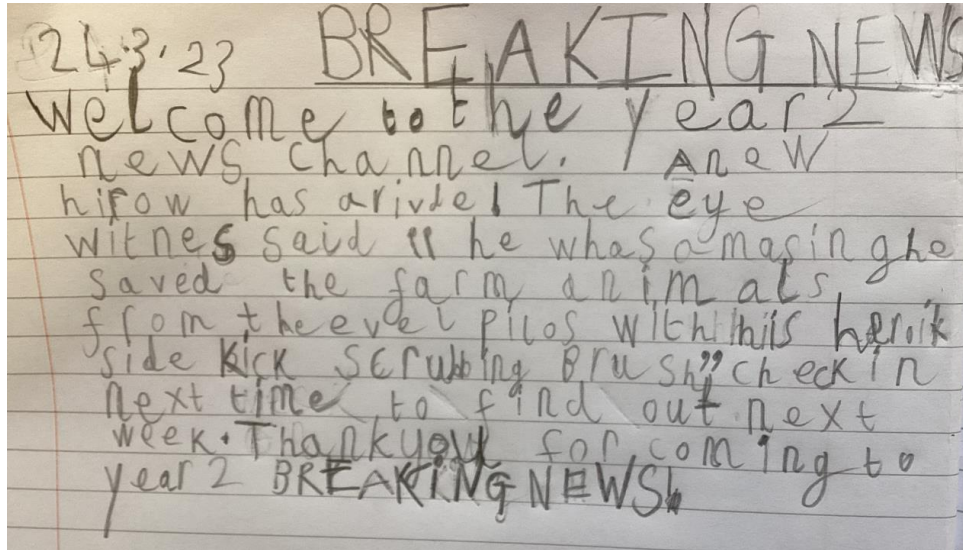 24.3.23 BREAKING NEWS
Welcome to the year 2
news channel. A new
hirow has arivde! The eye
witnes said " he whas amasing he
saved the farm animals
from the evel pilos with his heroik
side kick Scrubbing Brush" check in
next time to find out next
week. Thankyou for coming to
year 2 BREAKING NEWS!